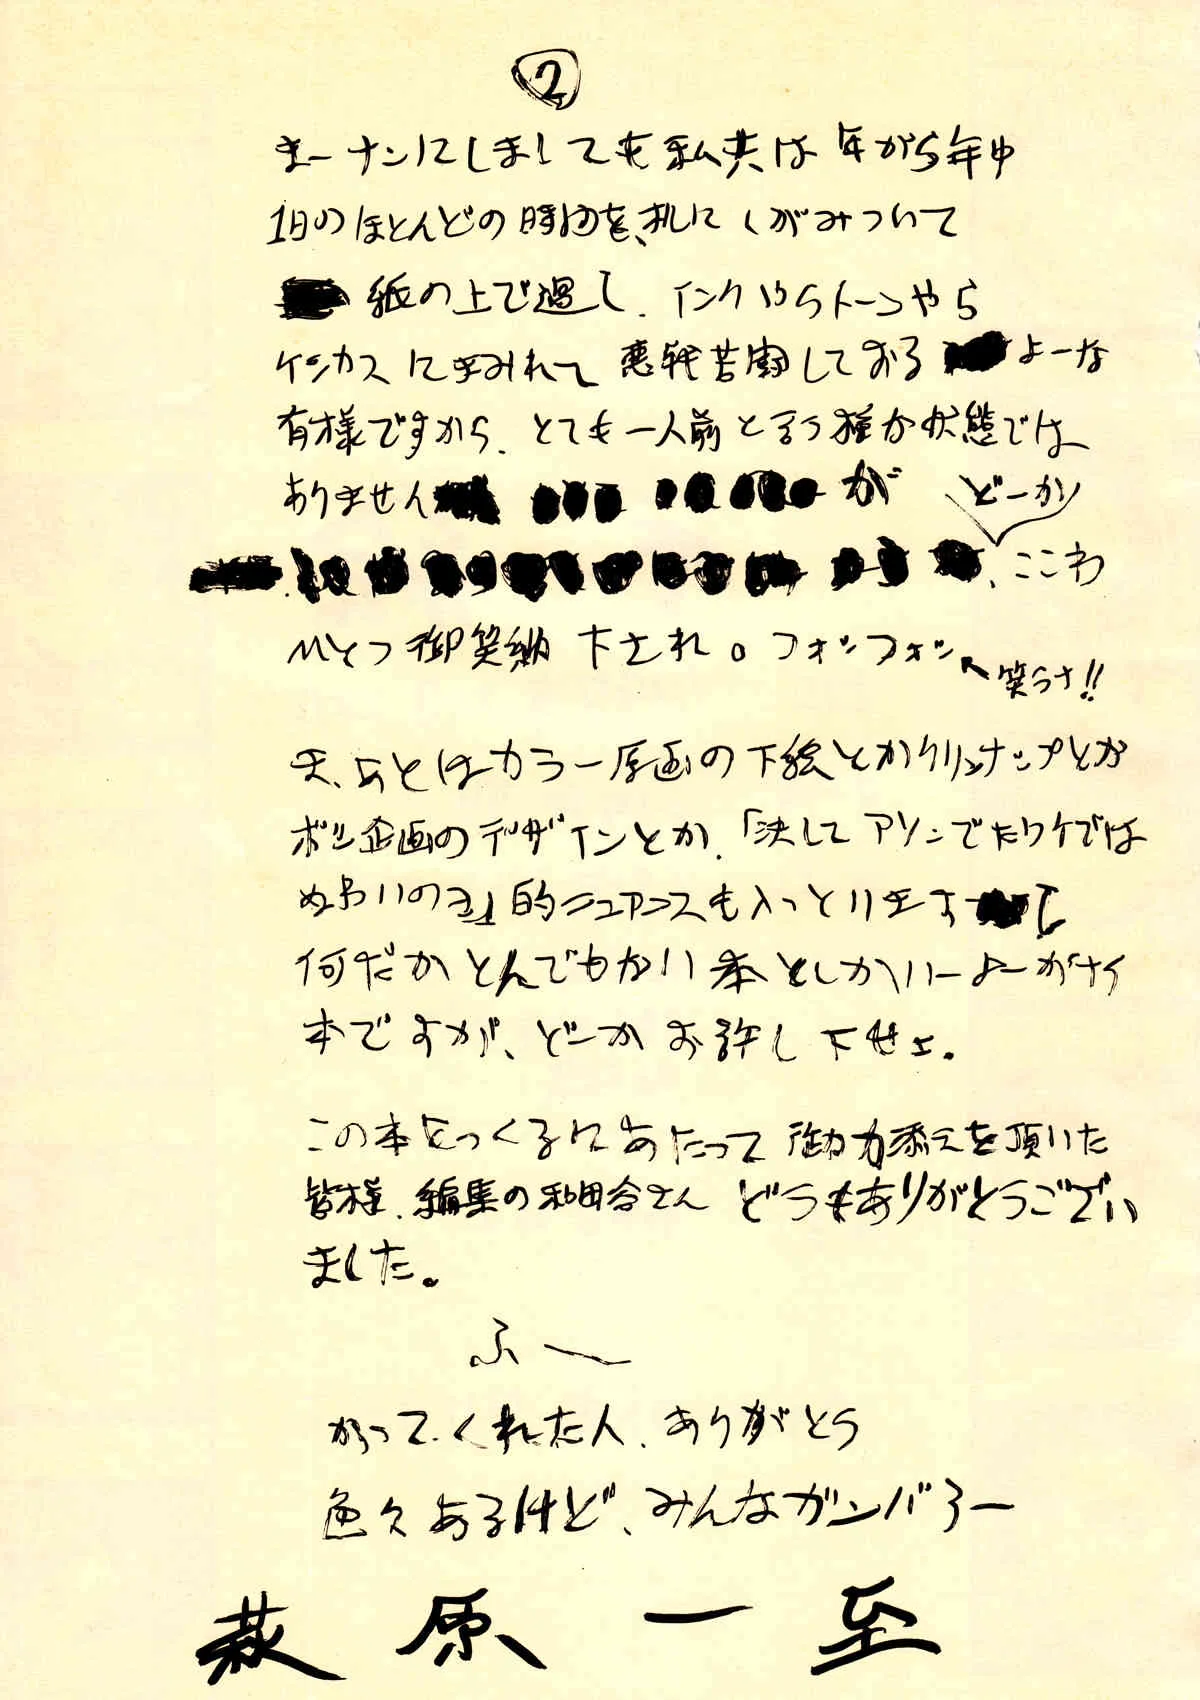 ②
まーナンにしましても私共は年がら年中
1日のほとんどの時間を、机にくがみついて
紙の上で過し、インクやらトーンやら
ケシカスにまみれて悪戦苦闘しておるよーな
有様ですから、とても一人前と言う種な状態では
ありません が どーか
、ここわ
ひとつ御笑納下され。フォンフォン
笑うナ!!
ま、あとはカラー原画の下絵とかクリンナップとか
ボツ企画のデザインとか、「決してアソンでたワケでは
ぬあいのヨ」的ニュアンスも入っとりますし
何だかとんでもない本としかいーよーがナイ
本ですが、どーかお許し下せェ。
この本をつくるにあたって御力添えを頂いた
皆様、編集の和田含さんどうもありがとうござい
ました。
ふー
かってくれた人、ありがとう
色々あるけど、みんなガンバろー
萩原一至